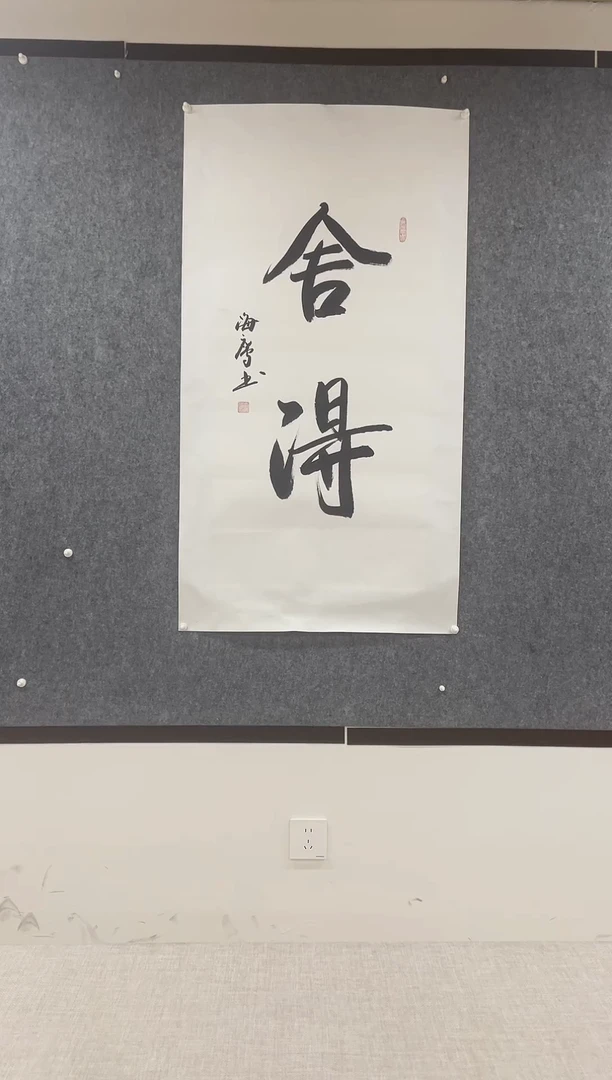 舍得
海鹰书